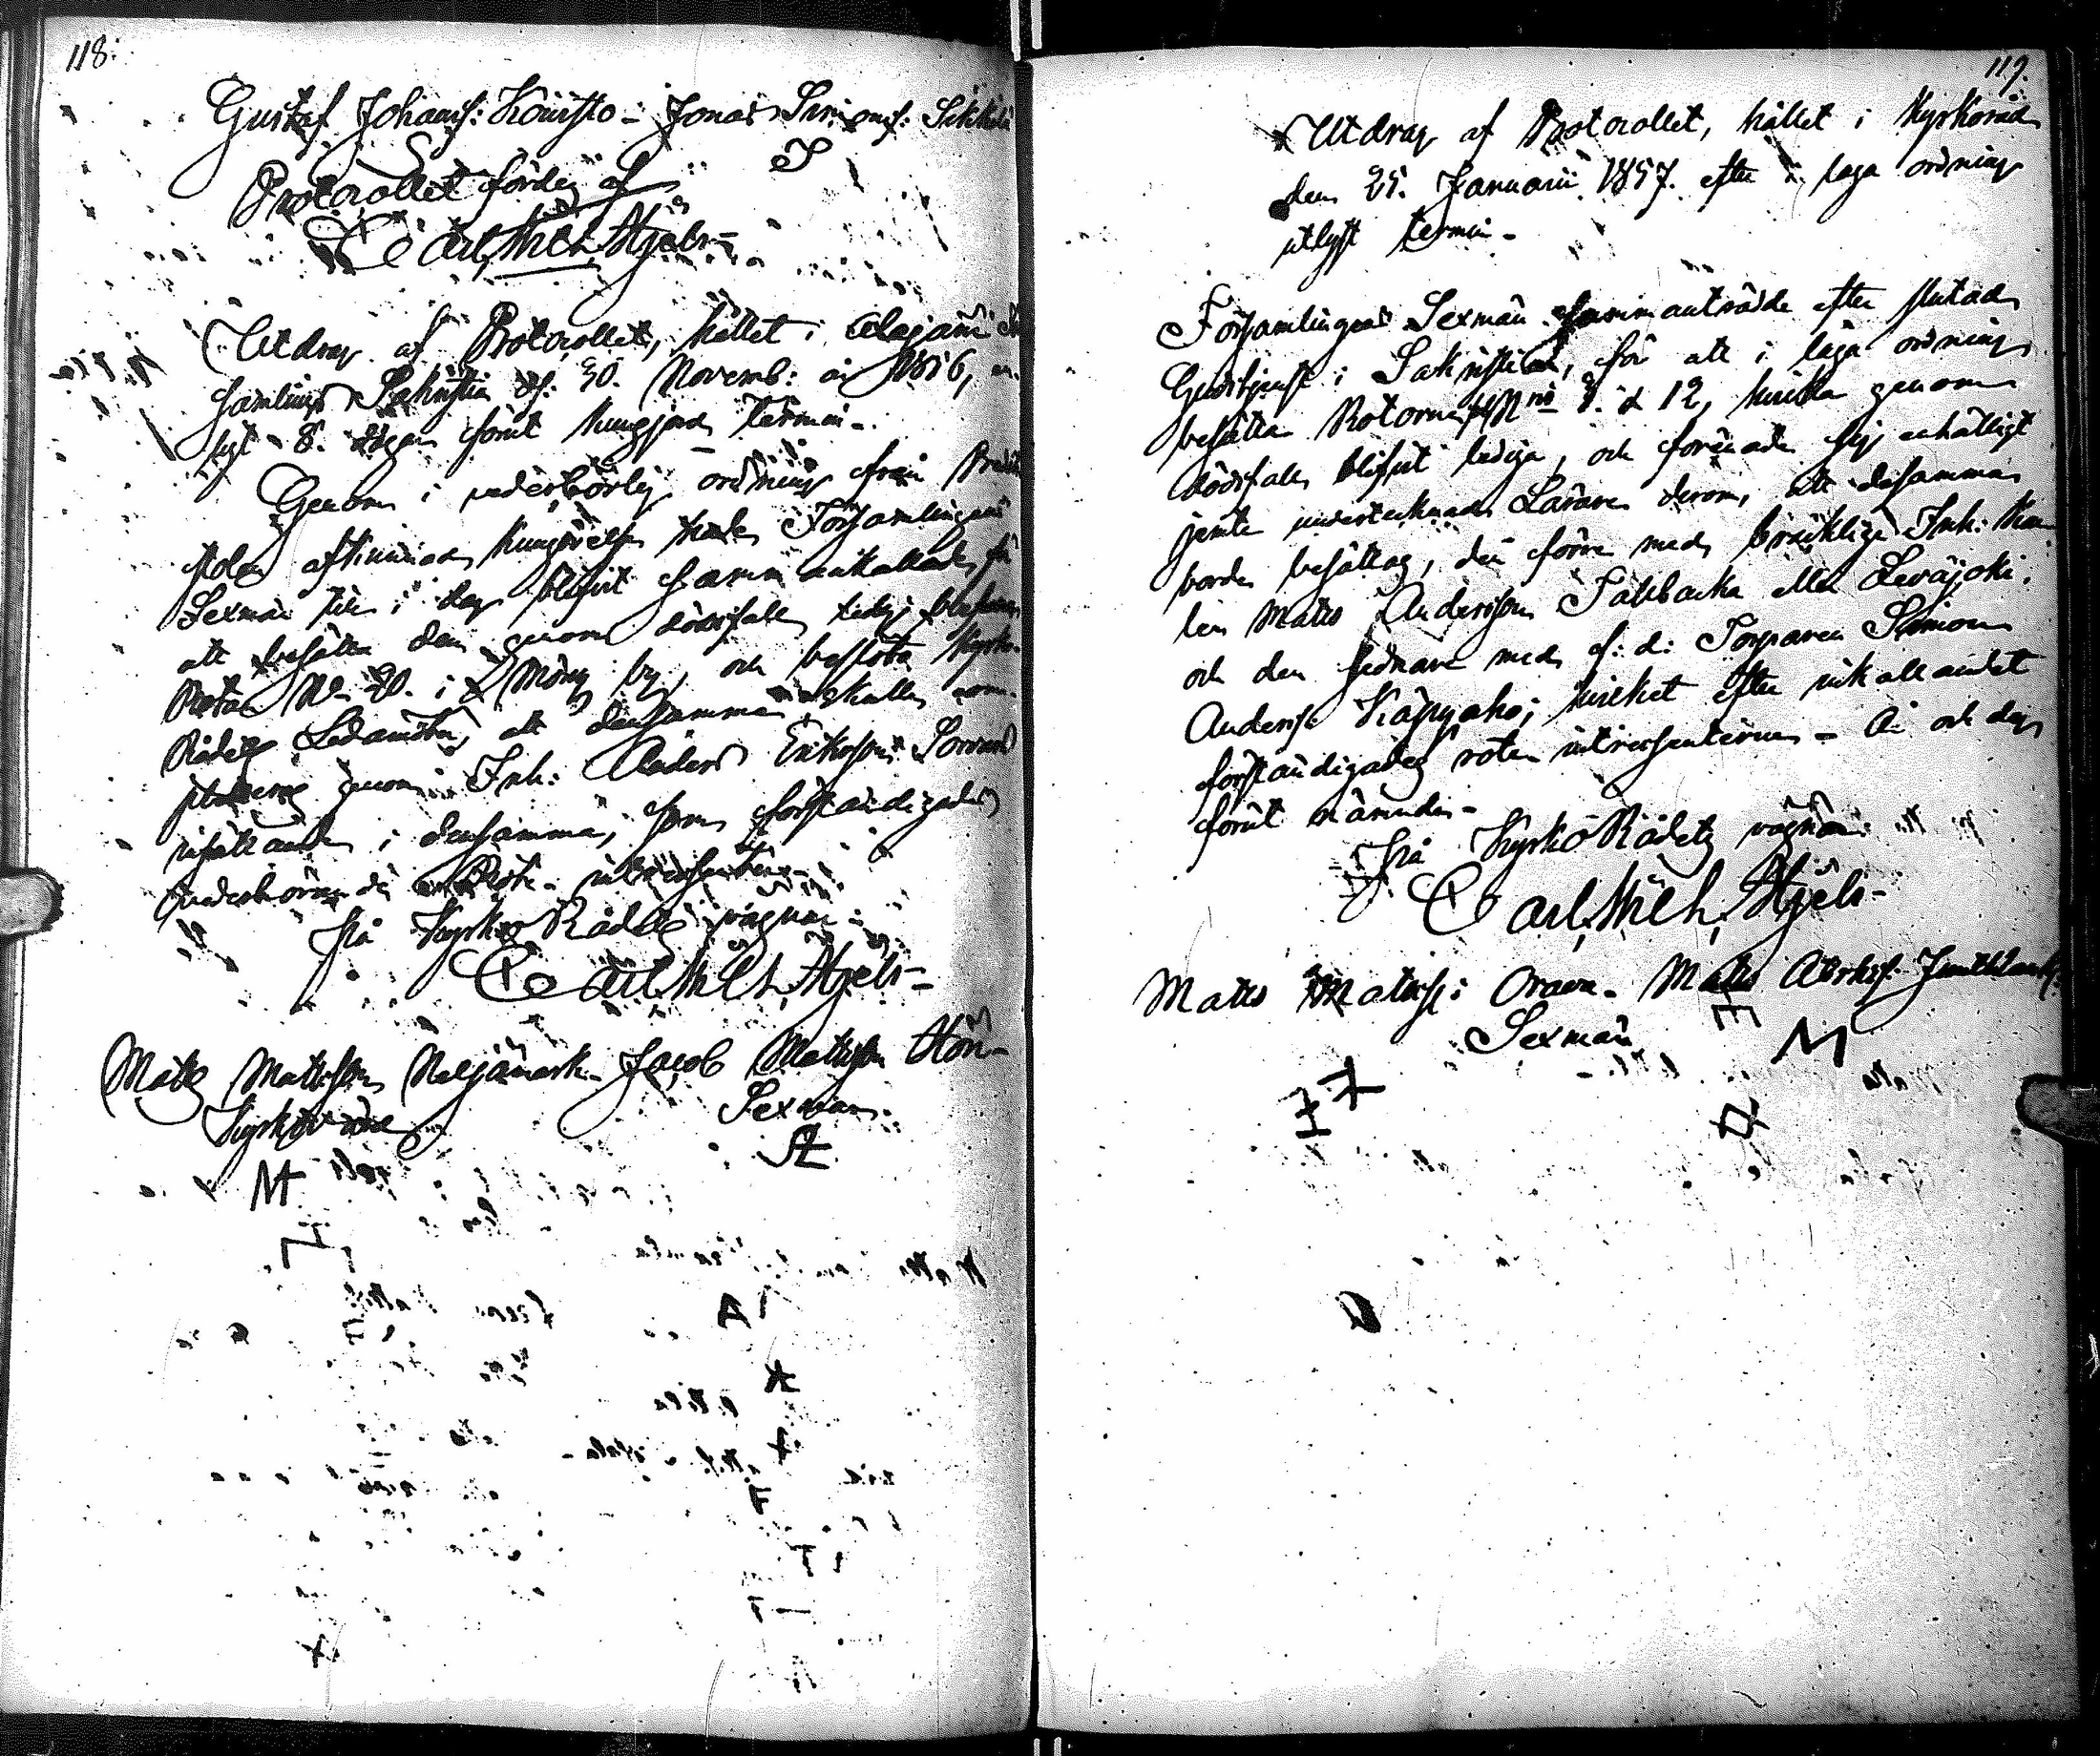 118.
Gustaf Johanss: Koivisto – Jonas Simonss: Sikkilä
Protocollet fördes af
Carl Wilh. Hjelt –
Utdrag af Protocollet, hållet i Alajärvi
samlings Sakristia d. 30. Novemb: år 1856,
lyst 8. dagar förut kungjord termin –
Genom i vederbörlig ordning från Predik
stolen afkunnad kungörelse hade Församlingens
Sexmän till i dag blifvit sammankallade, för
att besätta den genom dödsfall lediga
Rotan No 20. i by, och beslöto Kyrko-
Rådets Ledamöter, att densamma skulle kom-
pletteras genom Inh: Anders Eriksson
insättande i densamma, som förständigades
vederbörande Rote-intressenter –
På Kyrko Rådets vägnar:
Carl Wilh. Hjelt –
Matts Mattsson Neljämark – Jacob Mattsson
Kyrkovärd Sexmän.
119.
Utdrag af Protocollet, hållet i Kyrkoråd
den 25. Januarii 1857. efter i laga ordning
utlyst termin –
Församlingens Sexmän sammanträdde efter slutad
Gudstjenst i Sakristian, för att i laga ordning
besätta Rotorne Nris 8. & 12, hvilka genom
dödsfall blifvit lediga, och förenade sig enhälligt
jemte undertecknad Lärare derom, att desamma
borde besättas, den förra med bräcklige Inh: Kar-
len Matts Andersson Salobacka eller Leväjoki,
och den sednare med f: d: Torparen Simon
Anderss: Käpyaho; hvilket efter inkallandet
förständigades rote intressenterne – År och dag
förut nämndes –
På Kyrko Rådets vägnar
Carl Wilh. Hjelt –
Matts Matsss: Orava – Matts
Sexmän